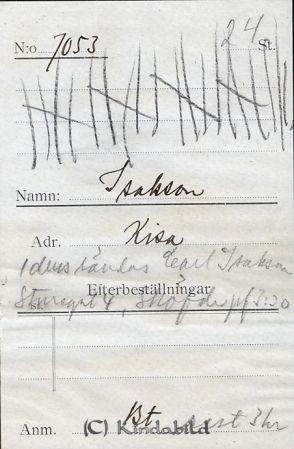 N:o 7053 24 St.
Namn: Isakson
Adr. Kisa
1 duss sändas Carl Isakson
Sturegat 4, Skövde pf 3:20
Efterbeställningar
Anm. Bt. 3 kr
(C) Kindabild